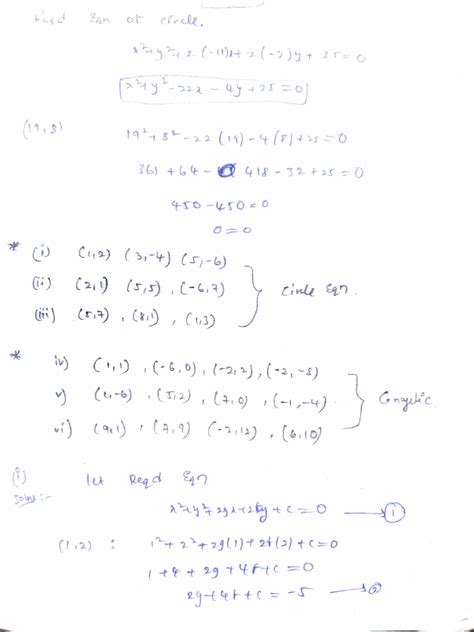 Reqd Eqn of circle.
x²+y²+2(-11)x+2(-2)y+25=0
x²+y²-22x-4y+25=0
(19,8) 19²+8²-22(19)-4(8)+25=0
361+64-418-32+25=0
450-450=0
0=0
* (i) (1,2) (3,-4) (5,-6)
(ii) (2,1) (5,5), (-6,7) Circle Eqn.
(iii) (5,7), (8,1), (1,3)
* iv) (1,1), (-6,0), (-2,2), (-2,-8)
v) (1,-6), (5,2), (7,0), (-1,-4) Concyclic.
vi) (9,1), (7,9) (-2,12), (6,10)
(i) let Reqd Eqn
Solns:-
x²+y²+2gx+2fy+c=0 → 1
(1,2) : 1²+2²+2g(1)+2f(2)+c=0
1+4+2g+4f+c=0
2g+4f+c=-5 → 2